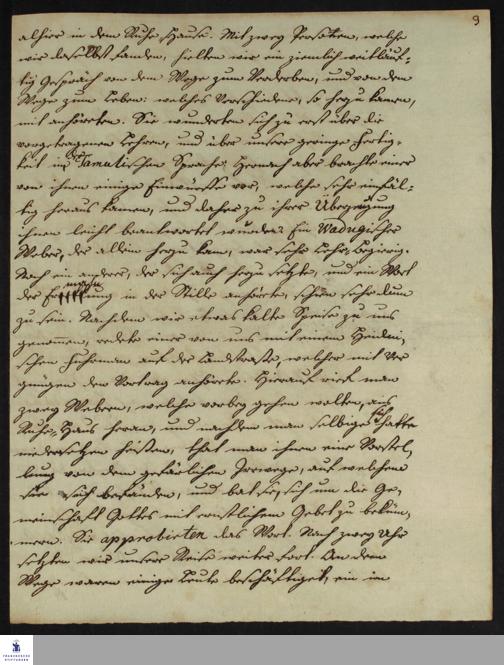 9
alhier in dem Ruhe-Hause. Mit zwey Personen, welche
wir daselbst fanden, hielten wir ein ziemlich weitläuf-
tig Gespräch von dem Wege zum Verderben, und von dem
Wege zum Leben: welches Verschiedene, so herzu kamen,
mit anhöreten. Sie wunderten sich zu erst über die
vorgetragenen Lehren, und über unsere geringe Fertig-
keit in der Tamulischen Sprache; Hernach aber brachte einer
von ihnen einige Einwürffe vor, welche sehr einfäl-
tig heraus kamen, und daher zu ihrer Überzeugung
ihnen leicht beantwortet wurden. Ein Wadugischer
Weber, der allein herzu kam, war sehr Lehr-Begierig.
Noch ein anderer, der sich auch herzu setzte, und ein Wort
der in der Stille anhörte, schien sehr dum
zu sein. Nachdem wir etwas kalte Speise zu uns
genommen, redete einer von uns mit einem Heidni-
schen Fuhrman auf der Landstraße, welcher mit Ver
gnügen den Vortrag anhörete. Hierauf rief man
zwey Webern, welche vorbey gehen wolten, ans
Ruhe-Haus heran, und nachdem man selbige sich hatte
niedersetzen heißen, that man ihnen eine Vorstel-
lung von dem gefärlichen Irrwege, auf welchem
sie sich befänden, und bat sie, sich um die Ge-
meinschaft Gottes mit ernstlichem Gebet zu beküm-
mern. Sie approbirten das Wort. Nach zwey Uhr
setzten wir unsere Reise weiter fort. An dem
Wege waren einige Leute beschäftiget, ein
FRANCKESCHE
STIFTUNGEN